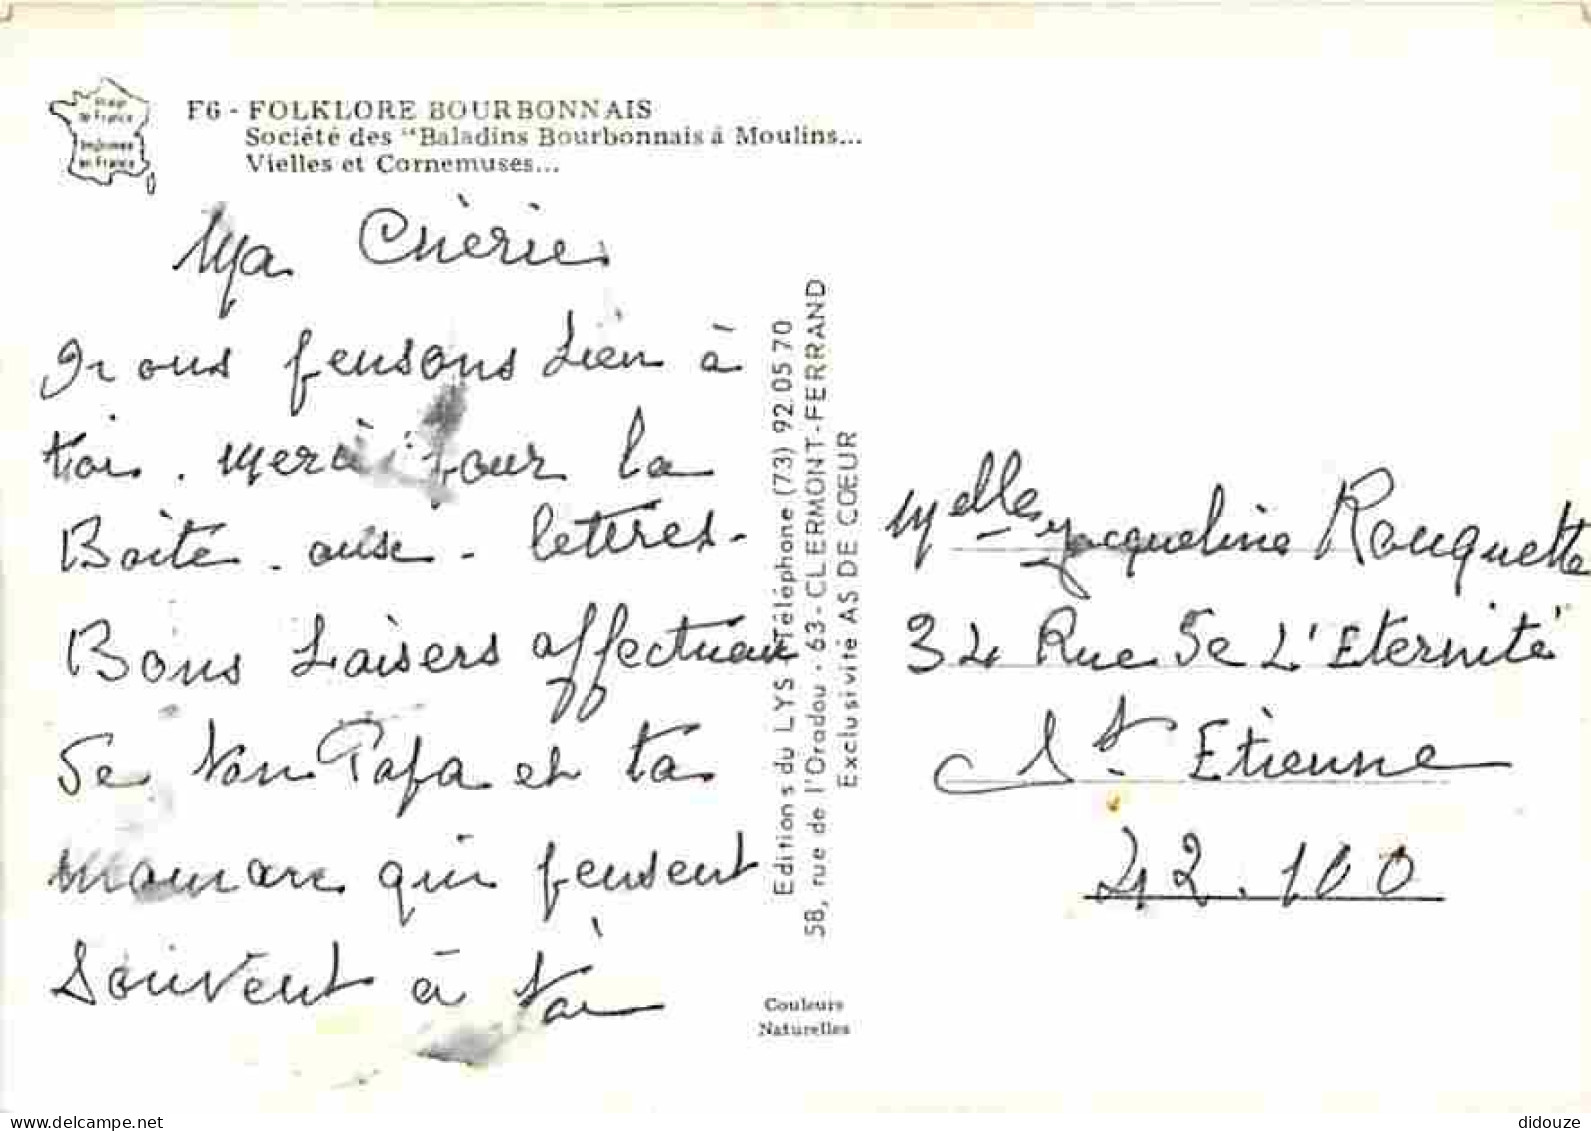 F6 - FOLKLORE BOURBONNAIS
Société des "Baladins Bourbonnais à Moulins...
Vielles et Cornemuses...
Image
de France
Imprimée
en France
Ma Chèrie
Nous pensons bien à
toi. Merci pour la
Boite aux lettres.
Bons baisers affectueux
de ton Papa et ta
maman qui pensent
souvent à toi
Editions du LYS Téléphone (73) 92.05.70
58, rue de l'Oradou - 63 - CLERMONT-FERRAND
Exclusivité AS DE CŒUR
Couleurs
Naturelles
Melle Jacqueline Rouquette
34 Rue de L'Eternité
St Etienne
42.100
delcampe.net
didouze